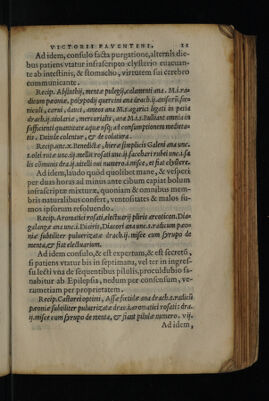 VICTORIS FAVENTINI. 11
Ad idem, consulo facta purgatione, alternis die
bus patiens vtatur infrascripto clysterio euacuan-
te ab intestinis, & stomacho, virtutem sui cerebro
communicante.
Recip. Absinthij, mentæ pulegij, calaminti ana M.i. ra
dicum pæoniæ, polypodij quercini ana drach.ij. anserũ ster
drach.ij. idolatriæ, mercurialis, ana M.i.s. Bulliant omnia in
sufficienti quantitate aquæ usq; ad consumptionem medieta-
tis. Deinde colentur, & de colatura.
Recip. unc.x. Benedictæ, hieræ simplicis Galeni ana unc.
t. olei rutæ unc.ij. mellis rosati unc.ij. sacchari rubei unc.i. sa
lis cõmunis drach.ij. vitelli oui numero.i. misce, et fiat clystere.
Ad idem, laudo quod quolibet mane, & vesperi
per duas horas ad minus ante cibum capiat bolum
infrascriptæ mixturæ, quoniam & omnibus mem
bris naturalibus confert, ventositates & malos hu
mos ipsorum resoluendo.
Recip. Aromatici rosati, electuarij pliris arcoticon. Dia
galangæ ana unc.i. Diuitis, Diacori ana unc.s. radicum pæo
niæ subtiliter puluerizatæ drach.ij. misce cum syrupo de
menta, & fiat electuarium.
Ad idem consulo, & est expertum, & est secretõ,
si patiens vtatur bis in septimana, vel ter in ingres
su lecti vna de sequentibus pilulis, proculdubio sa-
nabitur ab Epilepsia, nedum per consensum, ve-
rumetiam per proprietatem.
Recip. Castorei optimi, Assæ fœtidæ ana drach.s. radicis
pæoniæ subtiliter puluerizatæ drac.i. aromatici rosati: dra.
ij. misce cum syrupo de menta, & fiant pilulæ numero. vij.
Ad idem,